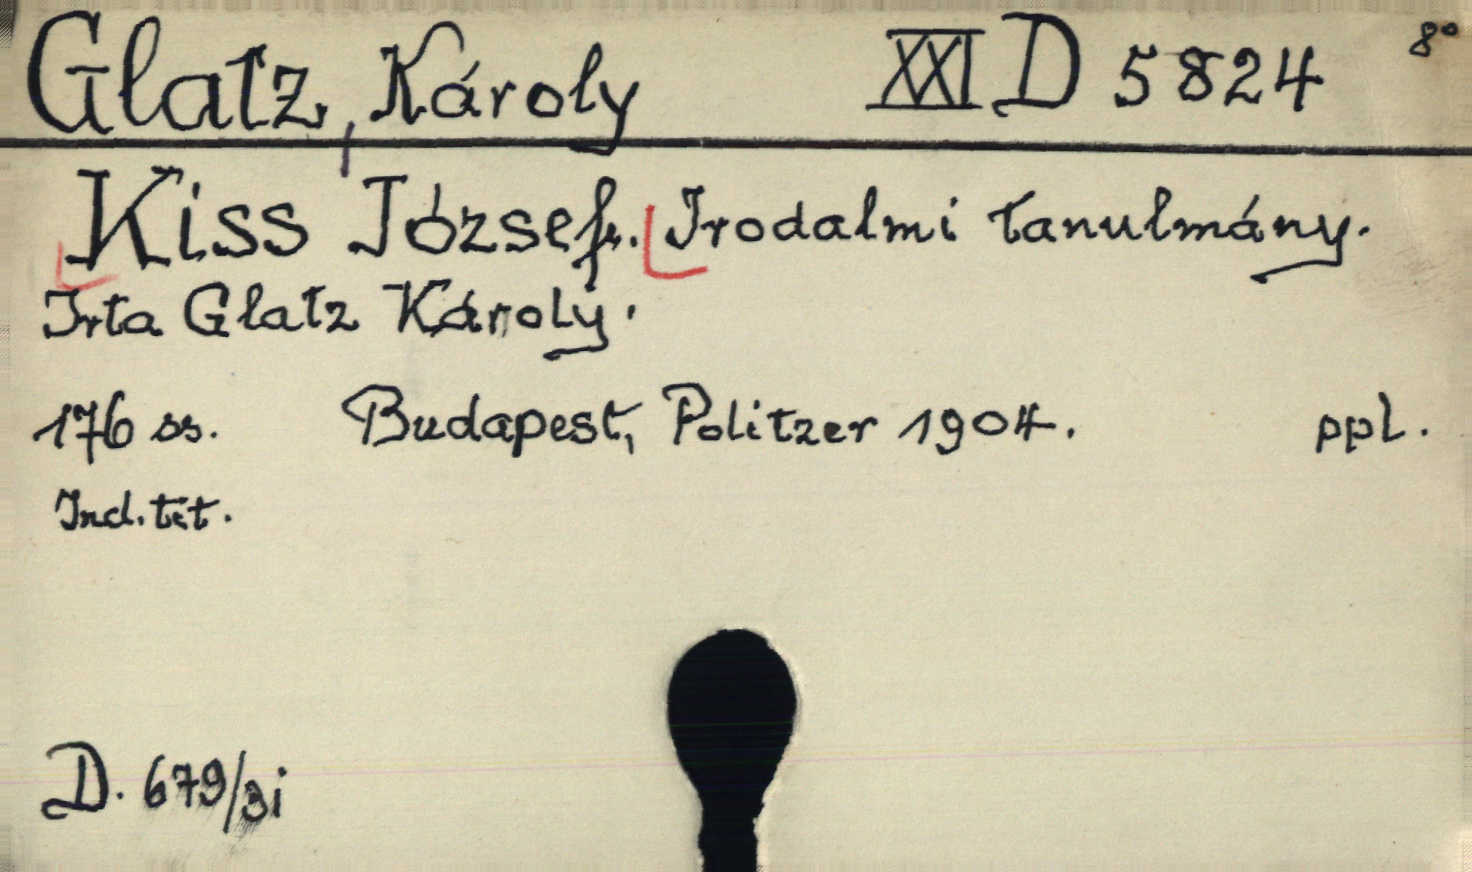 Glatz, Károly XXI D 5824 8°
Kiss József. Irodalmi tanulmány.
Irta Glatz Károly.
176 ss. Budapest, Politzer 1904. ppl.
Ind. tit.
D. 679/3i